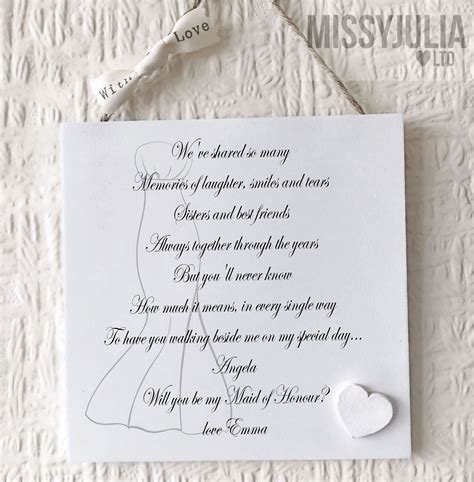 MISSYJULIA
LTD
With Love
We've shared so many
Memories of laughter, smiles and tears
Sisters and best friends
Always together through the years
But you'll never know
How much it means, in every single way
To have you walking beside me on my special day...
Angela
Will you be my Maid of Honour?
love Emma